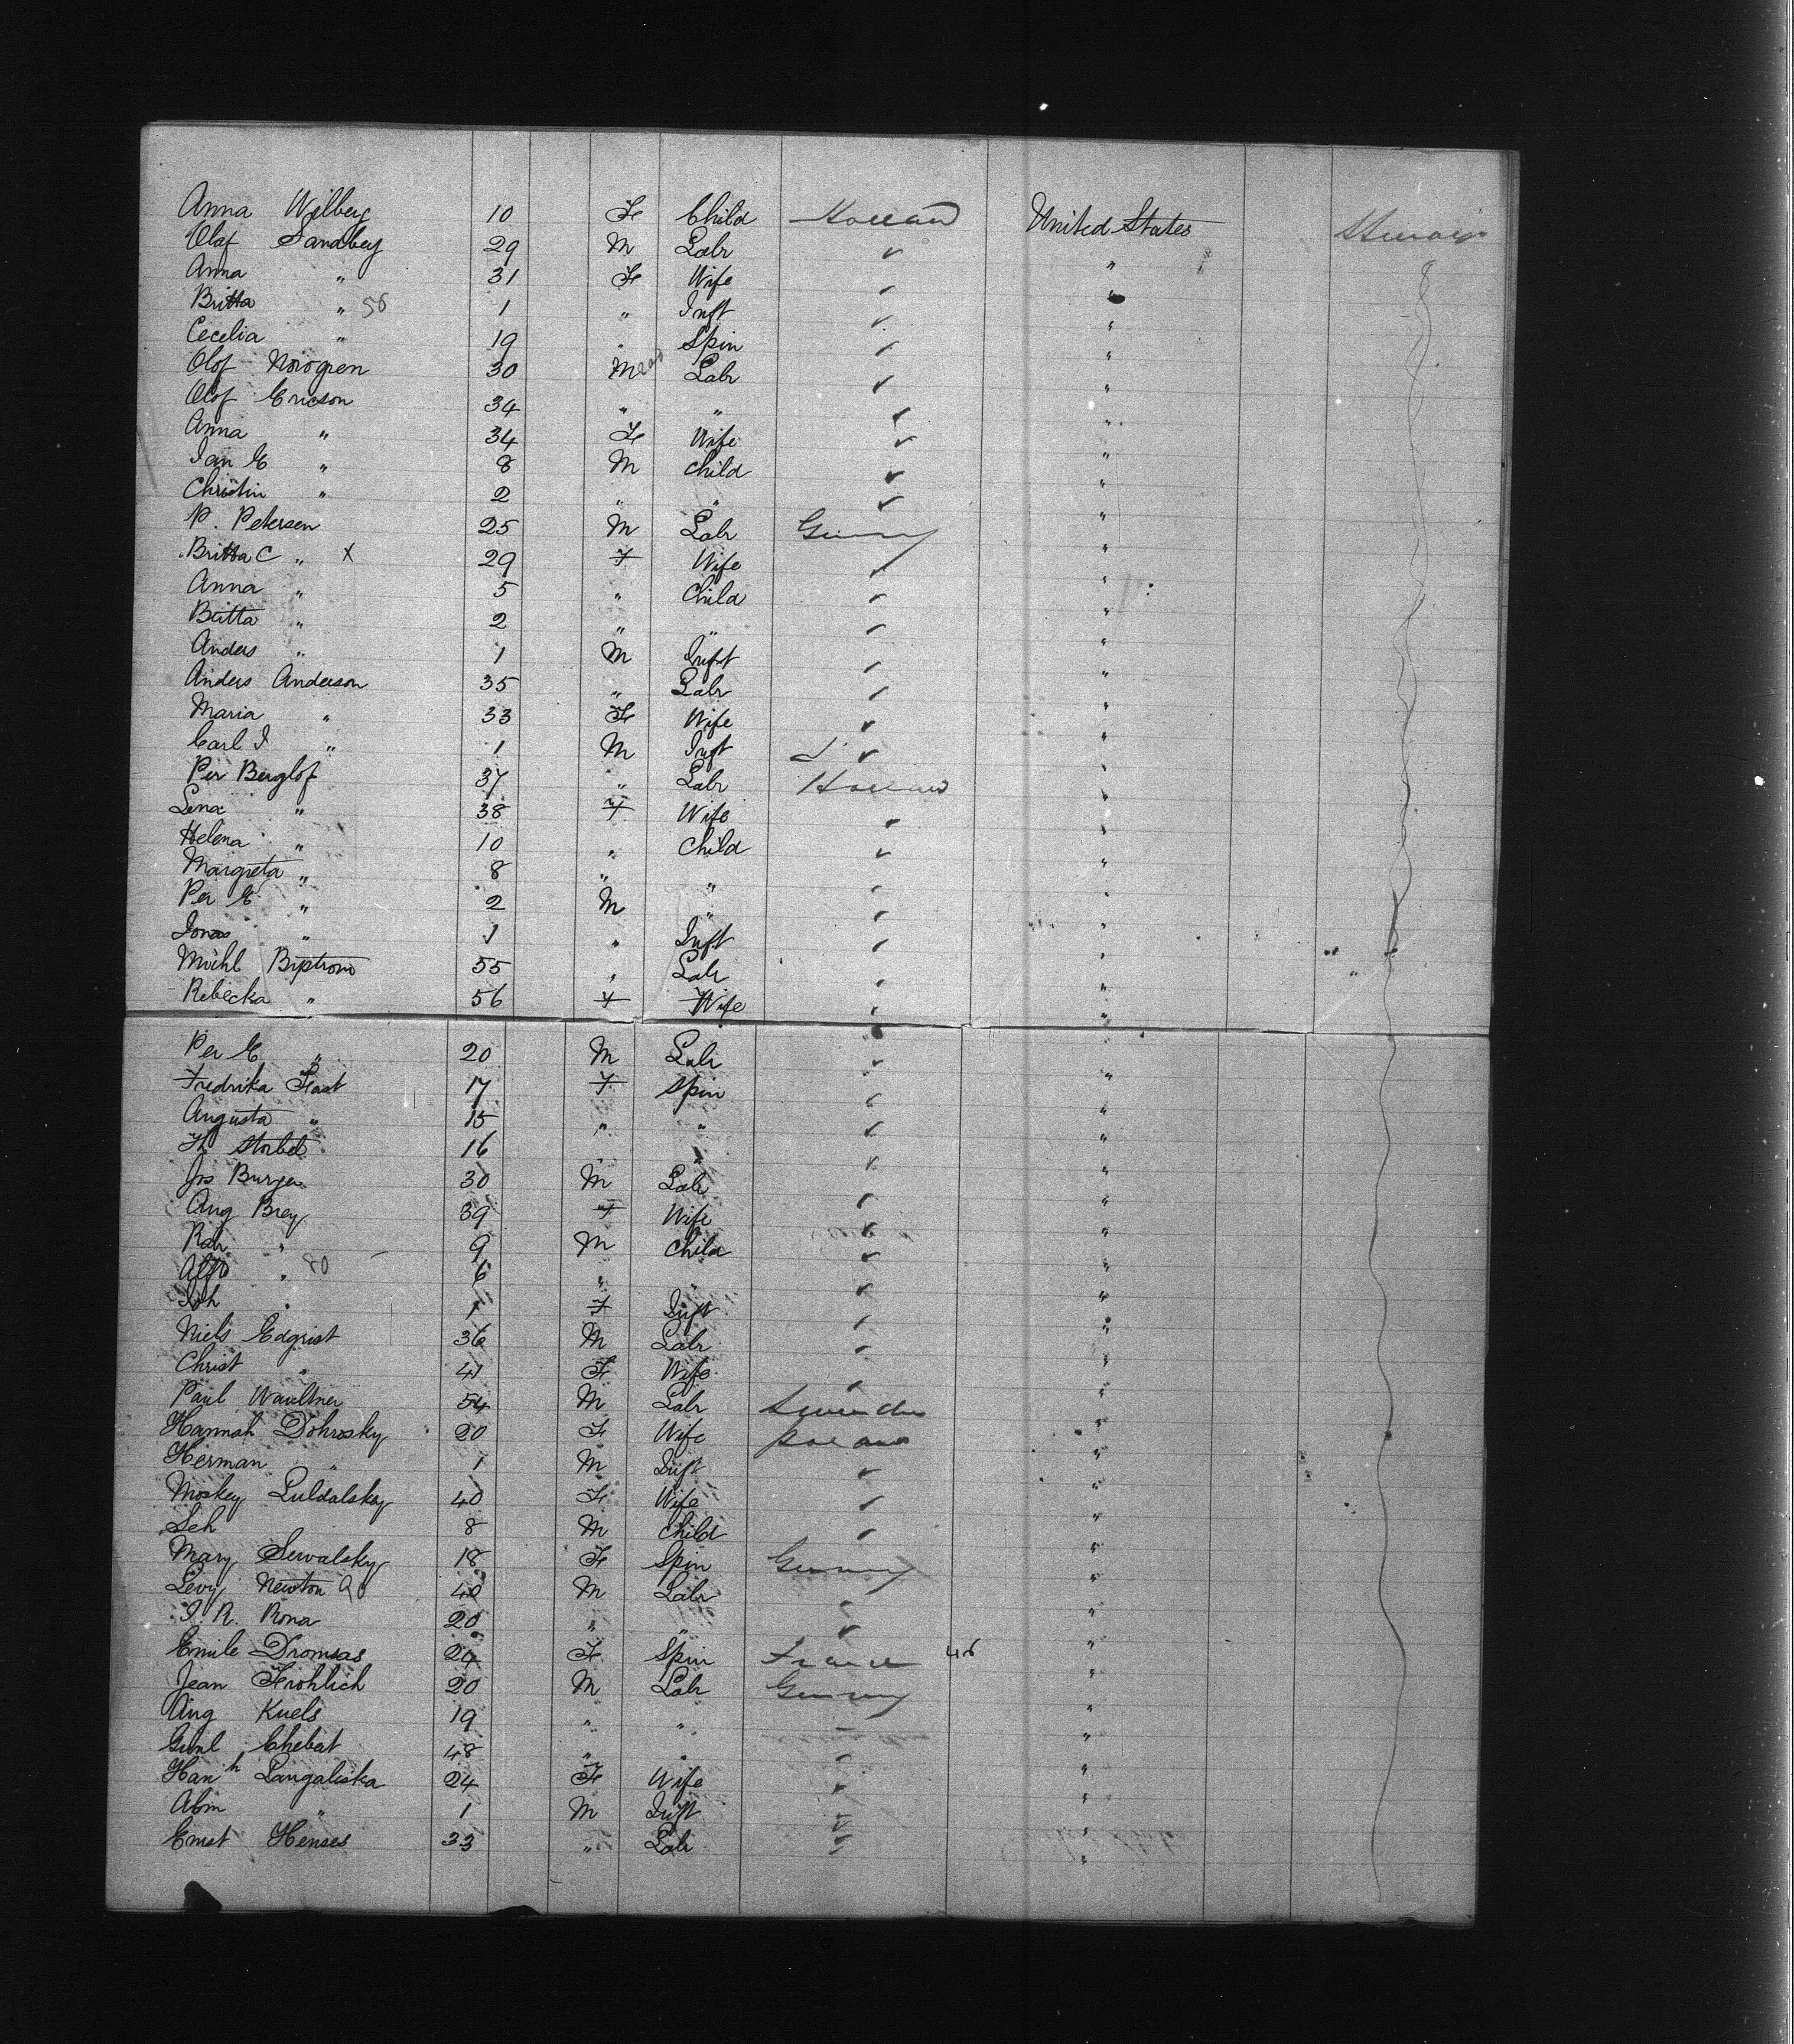 Anna Wilberg 10 Fe Child Holland United States Steerage
Olaf Sandberg 29 M Labr ✓ "
Anna " 31 Fe Wife ✓ "
Britta " 56 1 " Inft ✓ "
Cecelia " 19 " Spin ✓ "
Olof 30 M Labr ✓ "
Olof Ericson 34 " " ✓ "
Anna " 34 Fe Wife ✓ "
Jan E " 8 M Child ✓ "
Christin " 2 " " ✓ "
P. Petersen 25 M Labr Germy "
Britta C " X 29 F Wife ✓ "
Anna " 5 " Child ✓ "
Britta " 2 " " ✓ "
Anders " 1 M Inft ✓ "
Anders Anderson 35 " Labr ✓ "
Maria " 33 Fe Wife ✓ "
Carl I " 1 M Inft ✓ "
Per Berglof 37 " Labr Holland "
Lena " 38 F Wife ✓ "
Helena " 10 " Child ✓ "
Margreta " 8 " " ✓ "
Per E " 2 M " ✓ "
Jonas " 1 " Inft ✓ "
55 " Labr ✓ "
Rebecka " 56 F Wife ✓ "
Per E " 20 M Labr ✓ "
Fredrika Fast 17 F Spin ✓ "
Augusta " 15 " " ✓ "
16 " " ✓ "
Jos Burger 30 M Labr ✓ "
Aug Brey 39 F Wife ✓ "
" 9 M Child ✓ "
" 80 6 " ✓ "
Joh " 1 F Inft ✓ "
Niels Edqrist 36 M Labr ✓ "
Christ " 41 Fe Wife ✓ "
Paul Waultner 54 M Labr Sweden "
Hannah Dohrosky 20 Fe Wife Poland "
Herman " 1 M Inft ✓ "
Moskey Luldalsky 40 Fe Wife ✓ "
Leh 8 M Child ✓ "
Mary Sewalsky 18 Fe Spin Germy "
Levy Newton 40 M Labr ✓ "
I. R. Rona 20 " " ✓ "
Emile Dromsas 24 Fe Spin France 46 "
Jean Frohlich 20 M Labr Germy "
Aug Kuels 19 " " "
Chebat 48 " " ✓ "
Hanh Langaliska 24 Fe Wife ✓ "
Abm " 1 M Inft ✓ "
Ernst Henses 33 " Labr ✓ "